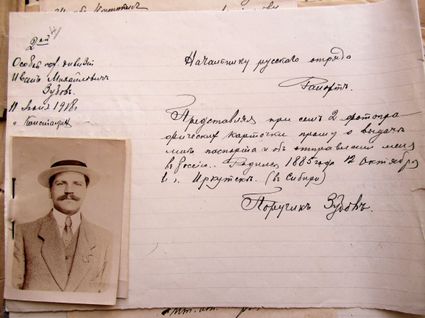 Особой пех. дивизіи
Иванъ Михайловичъ
Зубовъ.
11 Іюля 1918 г.
Начальнику русскаго отряда
Рапортъ.
Представляя при семъ 2 фотогра
фическихъ карточки прошу о выдачѣ
мнѣ паспорта и объ отправленіи меня
въ Россію. Родился 1885 года 12 Октября
въ г. Иркутскѣ. (въ Сибири)
Поручикъ Зубовъ.